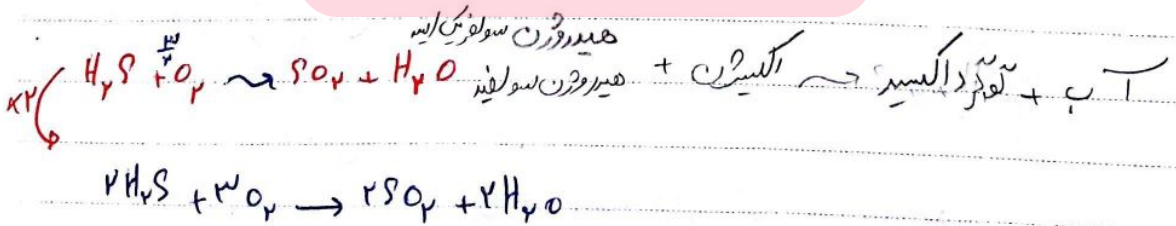 هیدروژن سولفوریک اسید
H₂S + ۳/۲ O₂ → SO₂ + H₂O هیدروژن سولفید + اکسیژن → گوگرد دی اکسید + آب
×۲
۲H₂S + ۳O₂ → ۲SO₂ + ۲H₂O